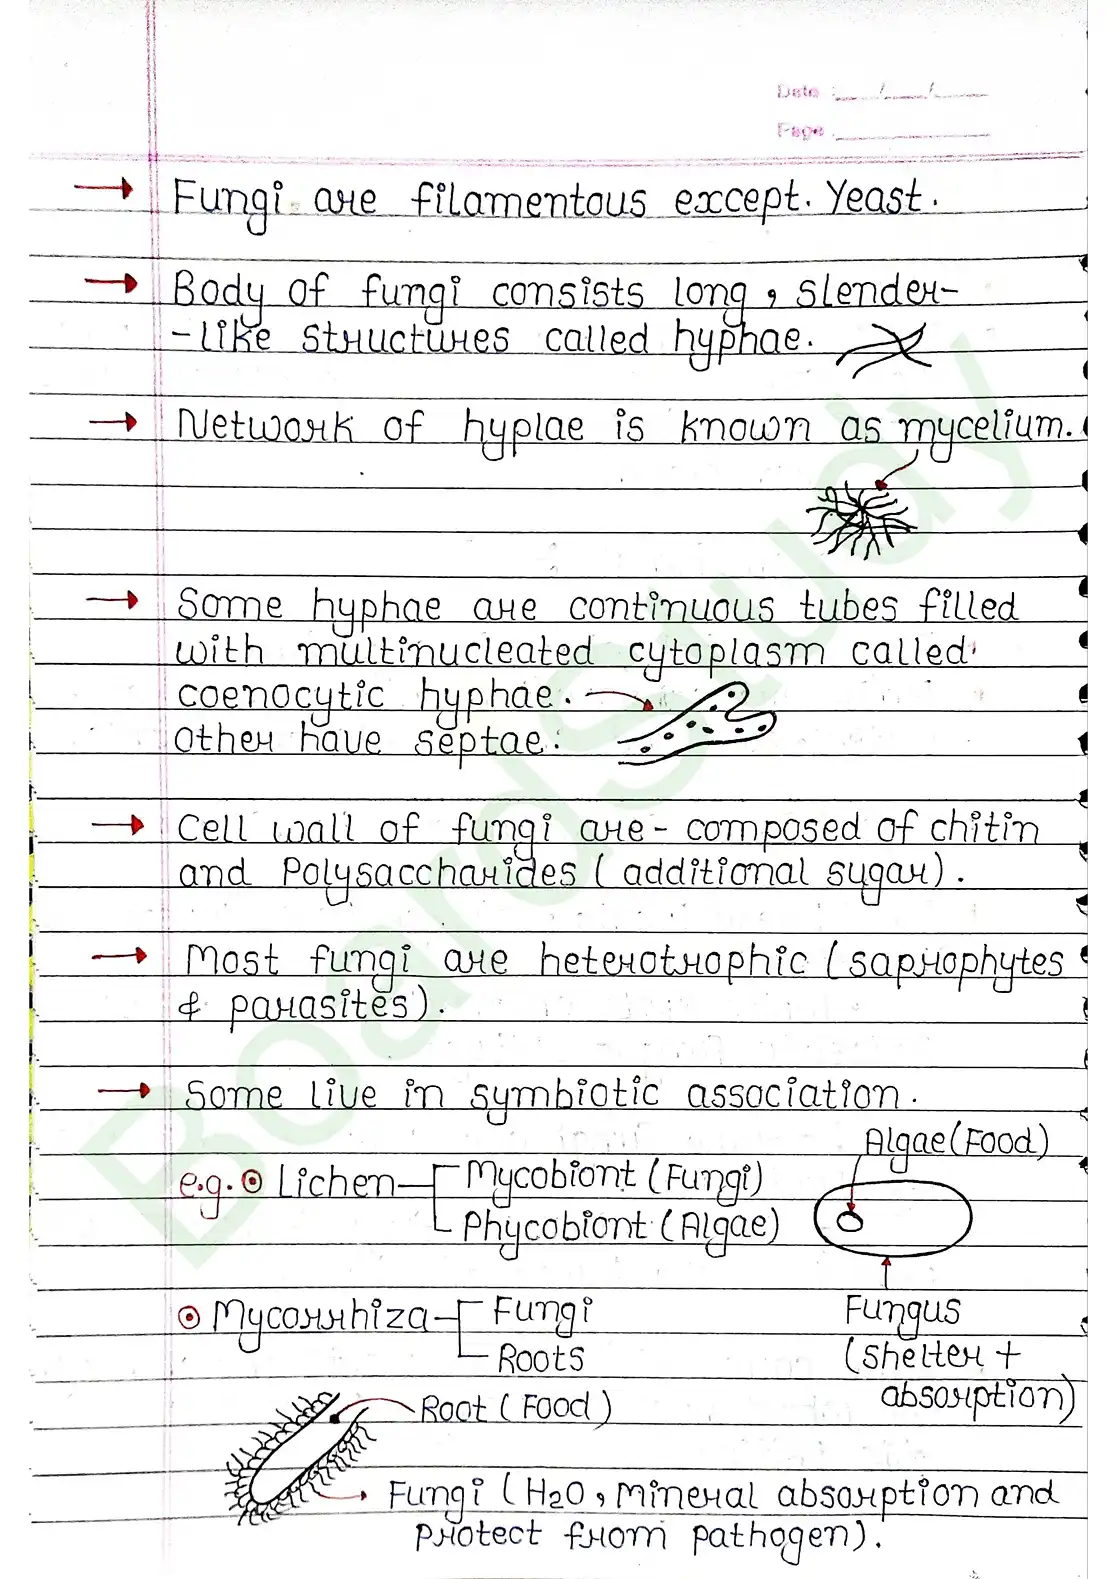 Date : __/__/__
Page : ______
→ Fungi are filamentous except. Yeast.
→ Body of fungi consists long, slender-
-like structures called hyphae.
→ Network of hyplae is known as mycelium.
→ Some hyphae are continuous tubes filled
with multinucleated cytoplasm called
coenocytic hyphae.
other have septae.
→ Cell wall of fungi are - composed of chitin
and Polysaccharides (additional sugar).
→ Most fungi are heterotrophic (saprophytes
& parasites).
→ Some live in symbiotic association.
Algae (Food)
e.g. ⊙ Lichen Mycobiont (Fungi)
Phycobiont (Algae)
⊙ Mycorrhiza Fungi
Roots
Fungus
(shelter +
absorption)
Root (Food)
→ Fungi (H2O, mineral absorption and
protect from pathogen).
BoardStudy